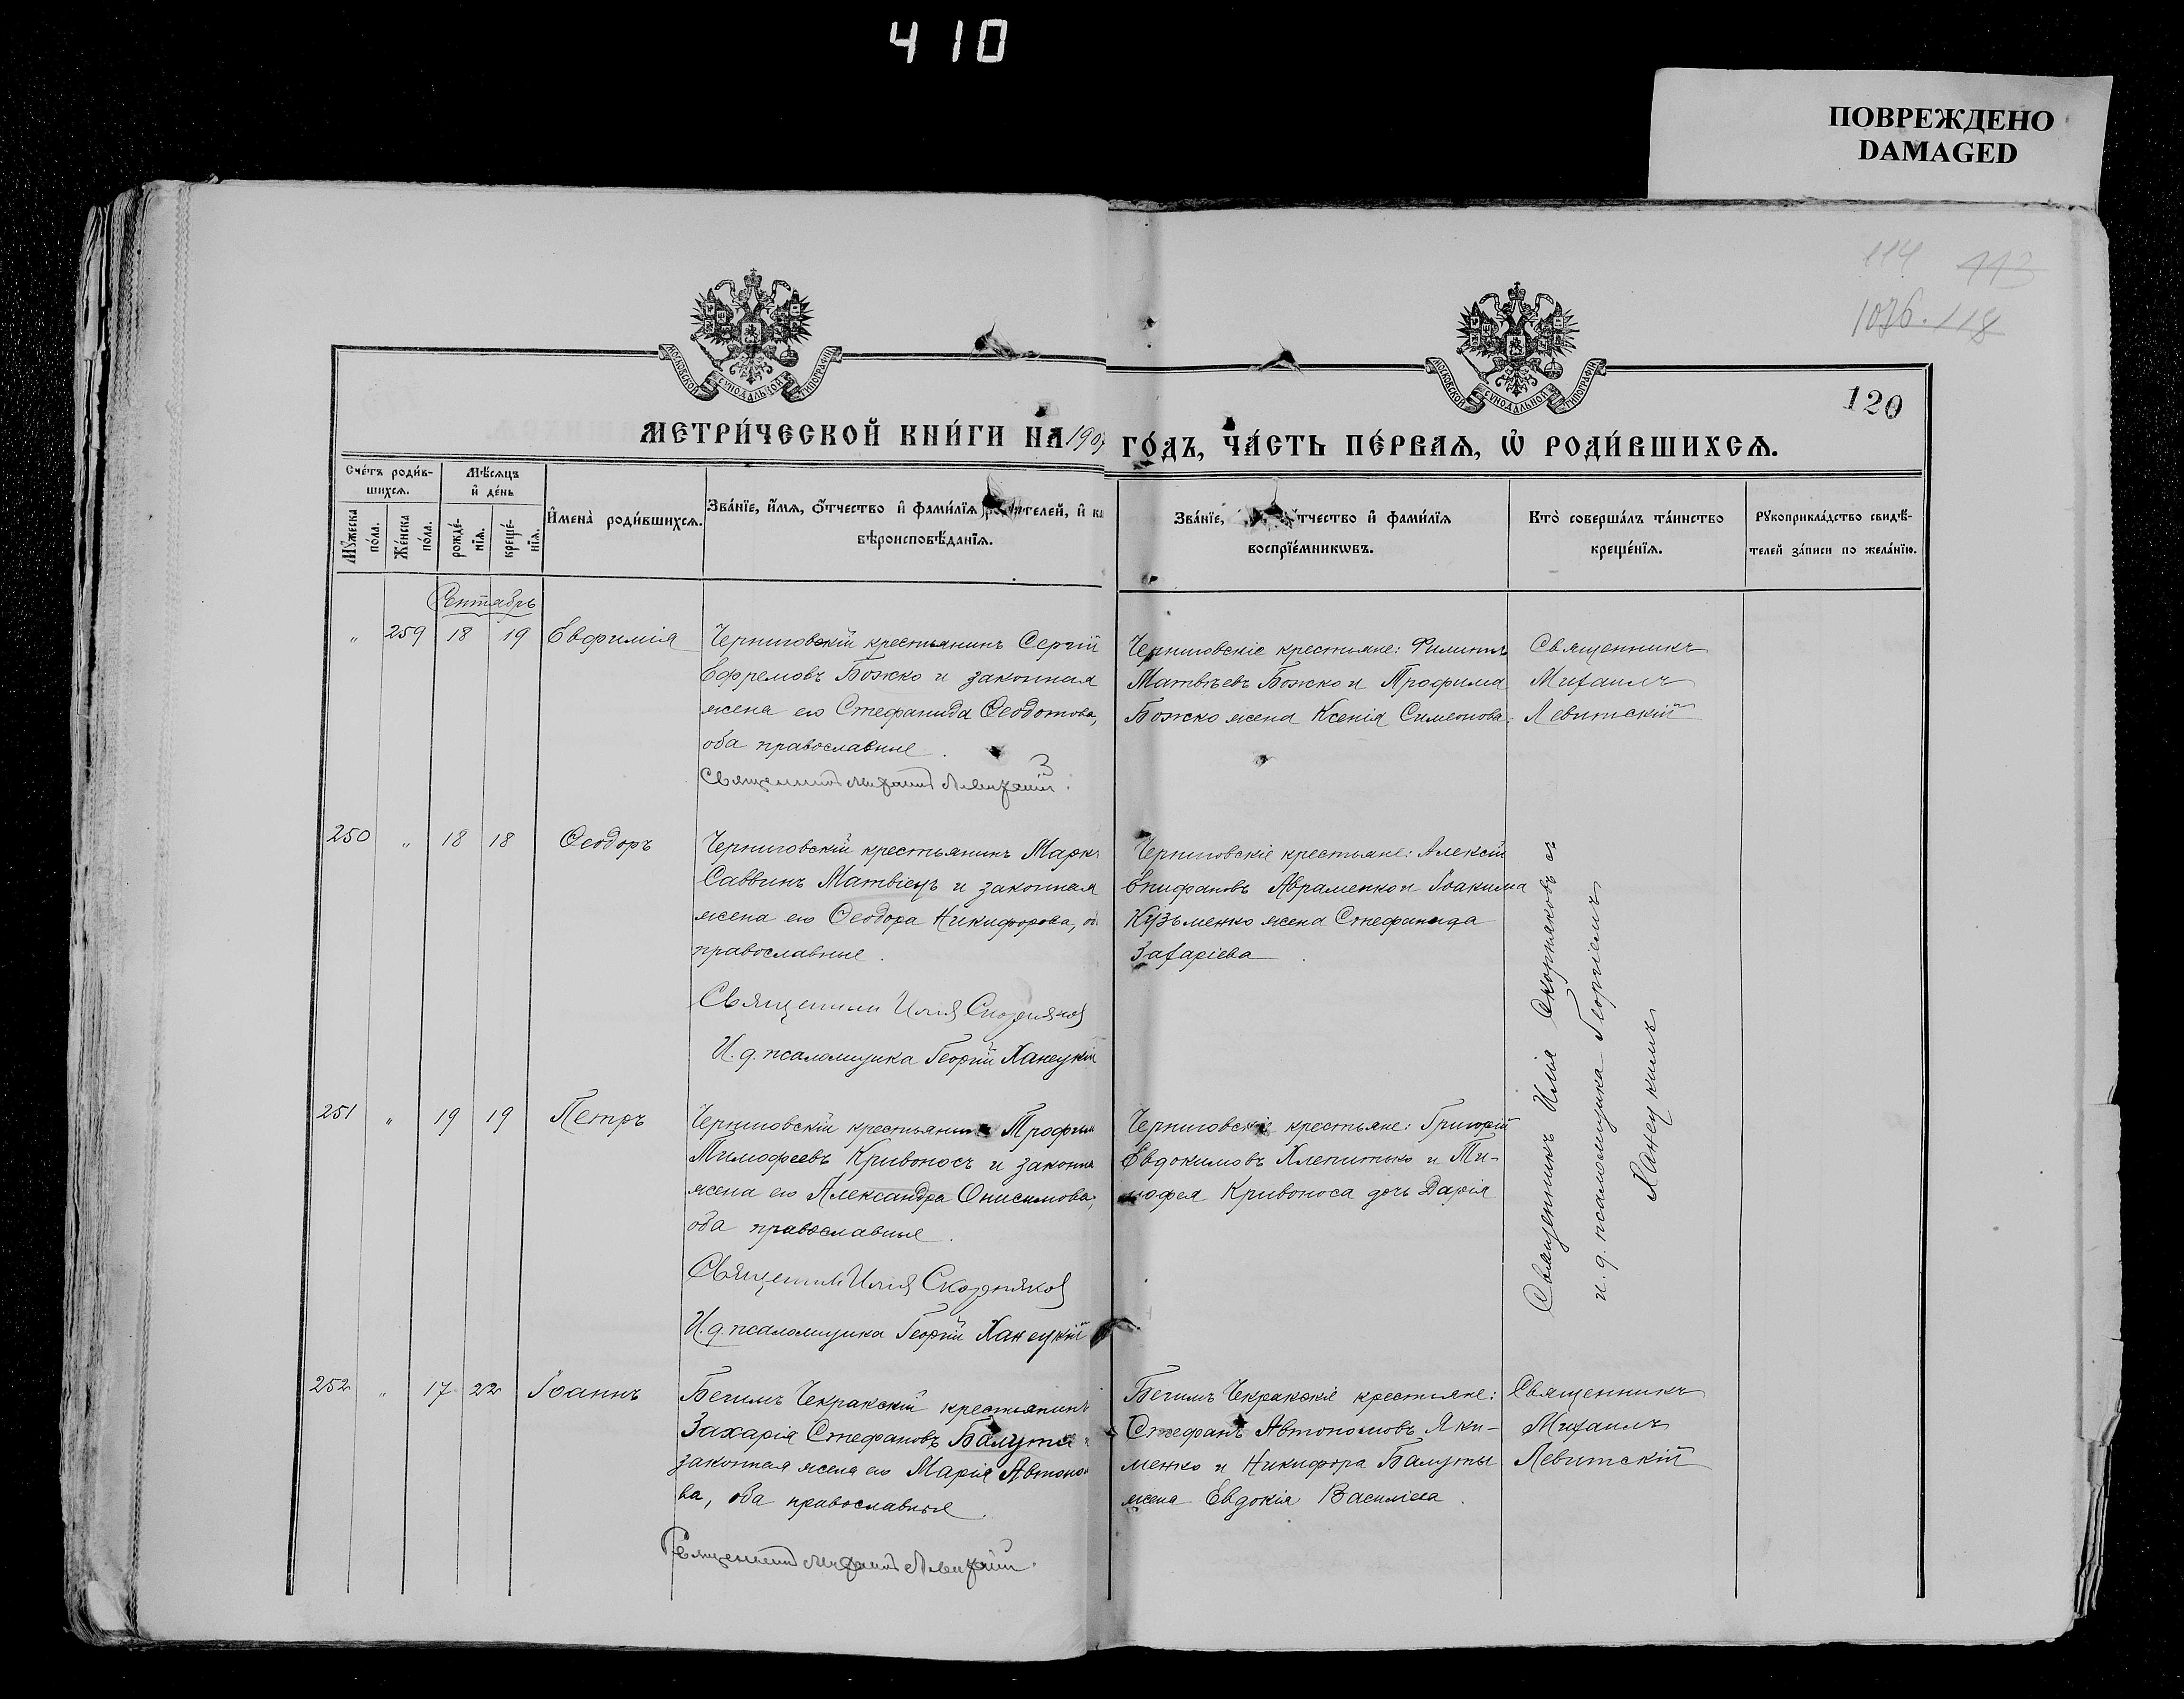 410
ПОВРЕЖДЕНО
DAMAGED
114 113
1076. 118
120
МОСКОВСКОЙ СУНОДАЛЬНОЙ ТИПОГРАФІИ
МОСКОВСКОЙ СУНОДАЛЬНОЙ ТИПОГРАФІИ
МЕТРИ́ЧЕСКОЙ КНИ́ГИ НА 190
ГО́ДЪ, ЧА́СТЬ ПЕ́РВАѦ, Ѡ҆ РОДИ́ВШИХСѦ.
Сче́тъ роди́в-
шихсѧ.
Мѣ́сѧцъ
и҆ де́нь
Мꙋ́жеска
по́ла.
Же́нска
по́ла.
рожде́-
нїѧ.
креще́-
нїѧ.
И҆мена̀ роди́вшихсѧ.
Зва́нїе, и҆́мѧ, ѻ҆́тчество и҆ фами́лїѧ роди́телей, и҆ ка
вѣроисповѣ́данїѧ.
Зва́нїе, ѻ҆́тчество и҆ фами́лїѧ
воспрїе́мникѡвъ.
Кто̀ соверша́лъ та́инство
креще́нїѧ.
Рꙋкоприкла́дство свидѣ́-
телей за́писи по жела́нїю.
Сентябрь
" 259 18 19 Евфимія
Черниговскій крестьянинъ Сергій
Ефремовъ Божко и законная
жена его Стефанида Ѳеодотова,
оба православные.
Священникъ Михаилъ Левитскій.
Черниговскіе крестьяне: Филиппъ
Матвѣевъ Божко и Трофима
Божко жена Ксенія Симеонова.
Священникъ
Михаилъ
Левитскій
250 " 18 18 Ѳеодоръ
Черниговскій крестьянинъ Маркъ
Саввинъ Матвіецъ и законная
жена его Ѳеодора Никифорова, об
православные.
Священникъ Илія Скорняковъ
И. д. псаломщика Георгій Ханецкій
Черниговскіе крестьяне: Алексій
Епифановъ Авраменко и Іоакима
Кузьменко жена Стефанида
Захаріева.
Священникъ Илія Скорняковъ съ
и. д. псаломщика Георгіемъ
Ханецкимъ
251 " 19 19 Петръ
Черниговскій крестьянинъ Трофим
Тимофеевъ Кривоносъ и законна
жена его Александра Онисимова,
оба православные.
Священникъ Илія Скорняковъ
И. д. псаломщика Георгій Ханецкій
Черниговскіе крестьяне: Григорій
Евдокимовъ Хлепитько и Ти-
мофея Кривоноса дочь Дарія
252 " 17 22 Іоаннъ
Бегимъ Чекракскій крестьянинъ
Захарія Стефановъ Балута и
законная жена его Марія Автоно
ва, оба православные.
Священникъ Михаилъ Левитскій.
Бегимъ Чекракскіе крестьяне:
Стефанъ Автономовъ Яки-
менко и Никифора Балуты
жена Евдокія Василіева.
Священникъ
Михаилъ
Левитскій